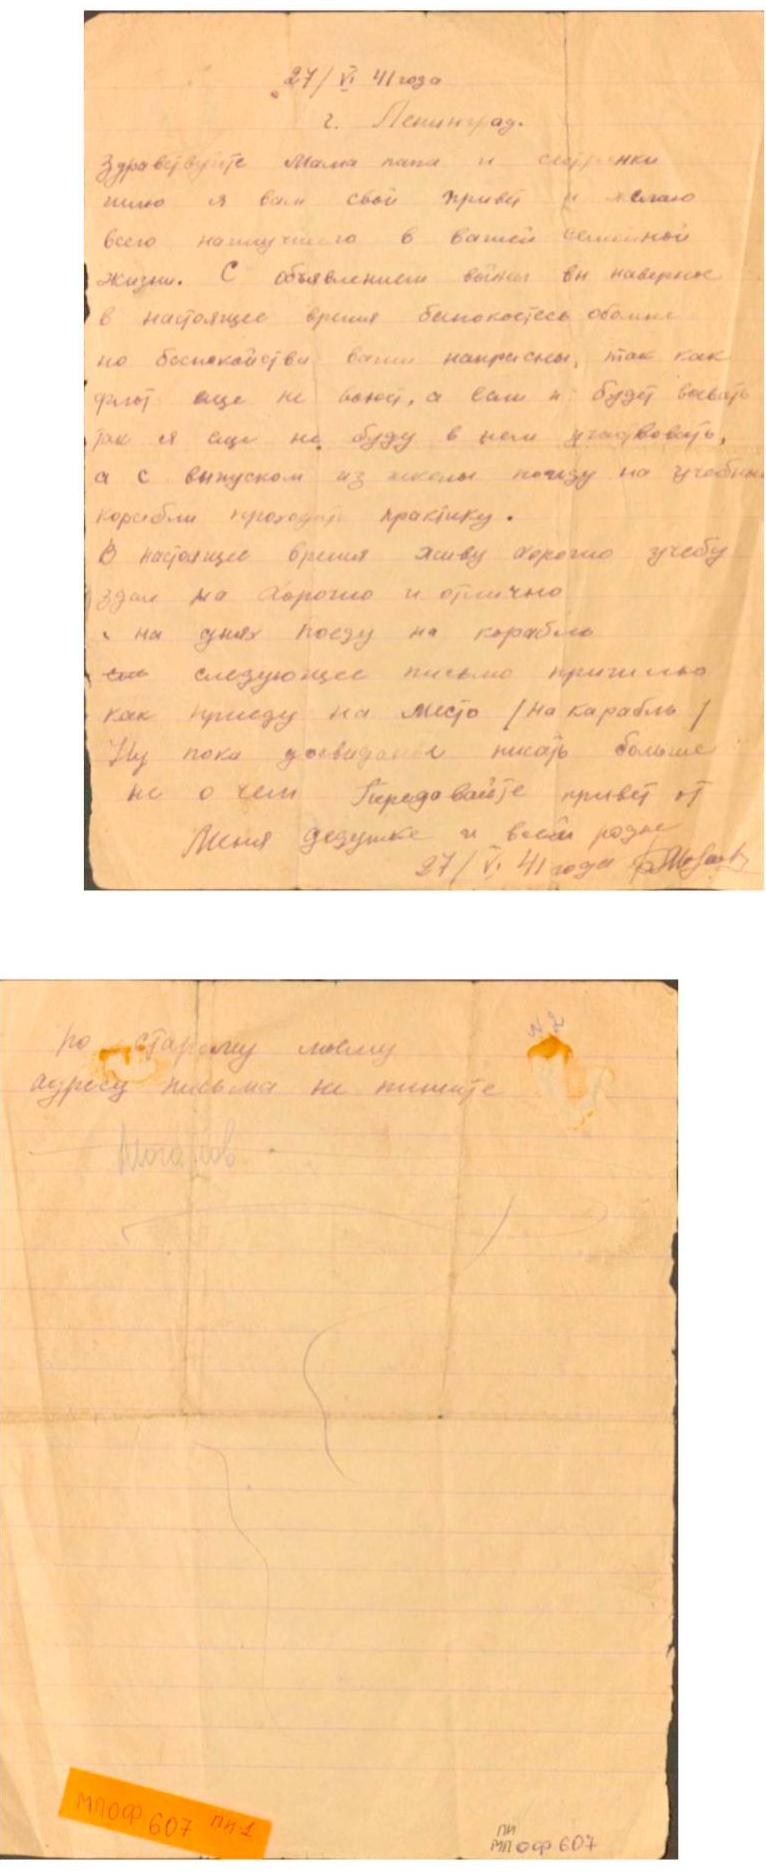 27/VI 41 года
г. Ленинград.
Здравствуйте Мама папа и сестренки
шлю я вам свой привет и желаю
всего наилучшего в вашей семейной
жизни. С объявлением войны вы наверное
в настоящее время беспокоетесь обомне
но беспокойства ваши напрасны, так как
флот еще не воюет, а если и будет воевать
так я еще не буду в нем участвовать,
а с выпуском из школы поеду на учебные
корабли проходить практику.
В настоящее время живу хорошо учебу
здал на хорошо и отлично
на днях поеду на корабль
следующее письмо пришлю
как приеду на место /на карабль/
Ну пока досвидания писать больше
не о чем Передавайте привет от
Меня дедушке и всей родне
27/VI 41 года
по старому моему
адресу письма не пишите
№2
МПОФ 607 ПИ-1
ПИ
МПОФ 607